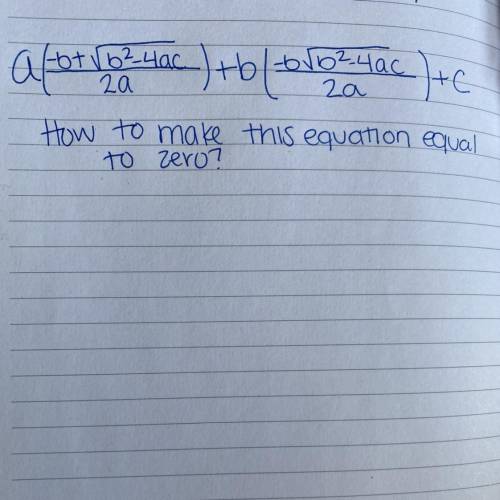 a(-b+√b²-4ac/2a)+b(-b√b²-4ac/2a)+c
How to make this equation equal
to zero?